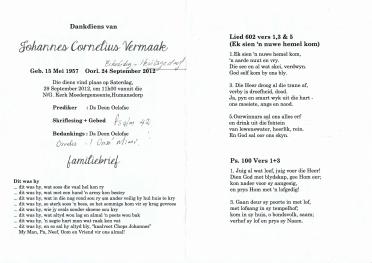 Dankdiens van
Johannes Cornelius Vermaak
Geb. 15 Mei 1957 Oorl. 24 September 2012
Die diens vind plaas op Saterdag,
29 September 2012, om 11h00 vanuit die
N/G. Kerk Moedergemeente, Humansdorp
Prediker : Ds Deon Oelofse
Skriflesing + Gebed : Psalm 42
Bedankings : Ds Deon Oelofse
familiebrief
Dit was hy
... dit was hy, wat soos die vaal hel kon ry
... dit was hy, wat met een hand 'n army kon bestry
... dit was hy, wat in die nag rond sou ry om ander veilig by hul huis te kry
... dit was hy, so sterk soos 'n bees, so het sommige hom vir sy krag gevrees
... dit was hy, wie jy reeds sonder skoene sou kry
... dit was hy, wat altyd wou lag en almal 'n poets wou bak
... dit was hy, 'n sagte hart man wat raak kon vat
... dit was hy, en so sal hy altyd bly, "hardvet Chops Johannes"
My Man, Pa, Neef, Oom en Vriend vir ons almal!
Lied 602 vers 1,3 & 5
(Ek sien 'n nuwe hemel kom)
1.Ek sien 'n nuwe hemel kom,
'n aarde nuut en vry.
Die see en al wat skei, verdwyn.
God self kom by ons bly.
3. Die Heer droog al die trane af,
verby is droefheid, dood.
Ja, pyn en smart wyk uit die hart -
ons moeiste, angs en nood.
5.Oorwinnaars sal ons alles erf
en drink uit die fontein
van lewenswater, heerlik, rein.
En God sal oor ons skyn.
Ps. 100 Vers 1+3
1. Juig al wat leef, juig voor die Heer!
Dien God met blydskap, gee Hom eer;
kom nader voor sy aangesig,
en prys Hom met 'n lofgedig!
3. Gaan deur sy poorte in met lof,
met lofsang in sy tempelhof;
kom in sy huis, o bondsvolk, saam;
verhef sy lof en prys sy Naam.